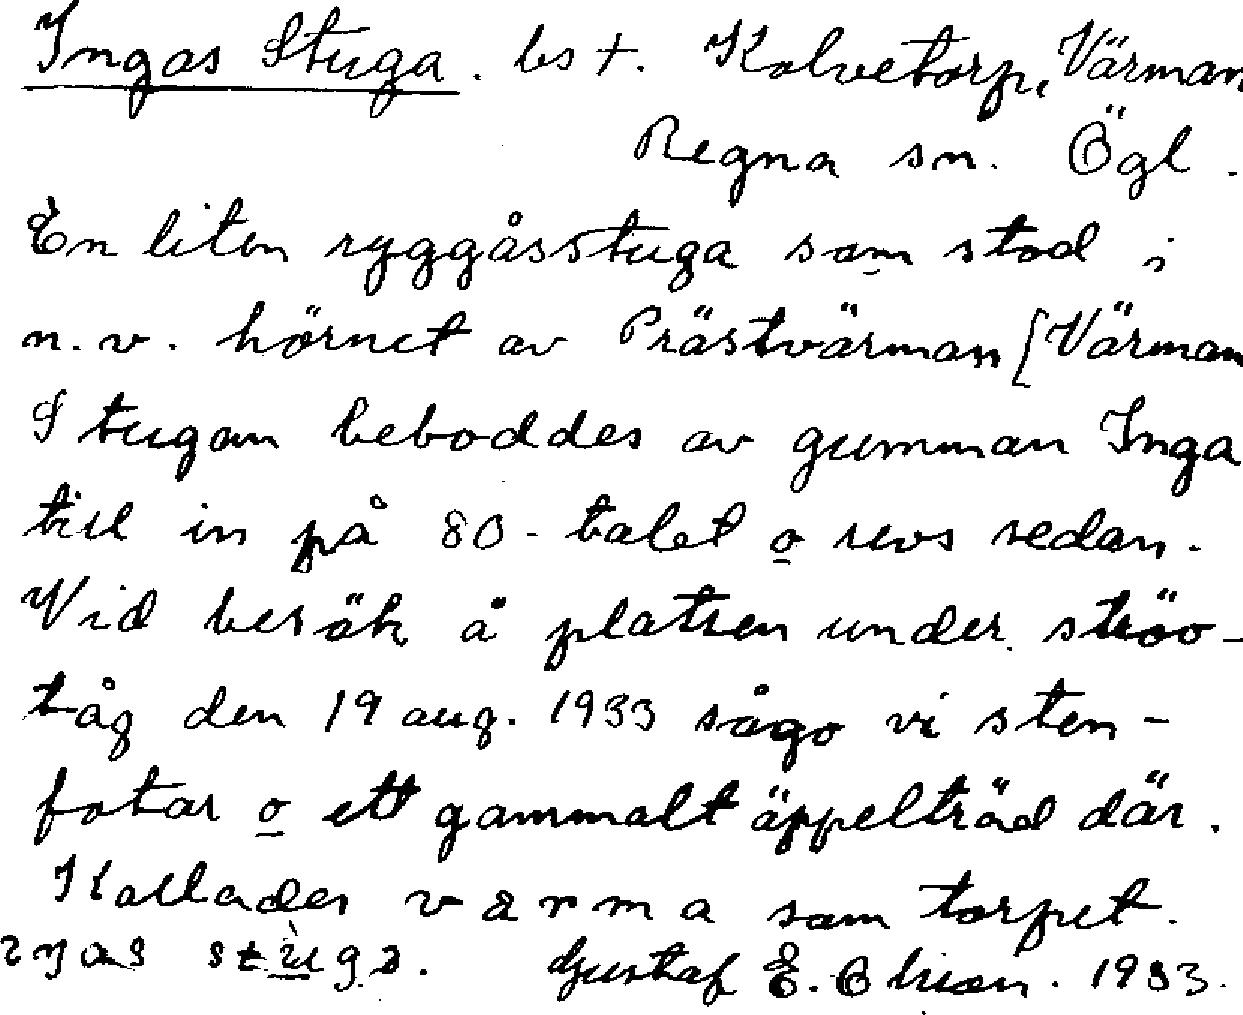 Ingas Stuga. bst. Kalvetorp, Värman
Regna sn. Ögl.
En liten ryggåsstuga som stod i
n.v. hörnet av Prästvärman [Värman
Stugan beboddes av gumman Inga
till in på 80-talet o revs sedan.
Vid besök å platsen underströv-
tåg den 19 aug. 1933 sågo vi sten-
fotar o ett gammalt äppelträd där.
Kallades värma som torpet.
Gustaf E. 1933.